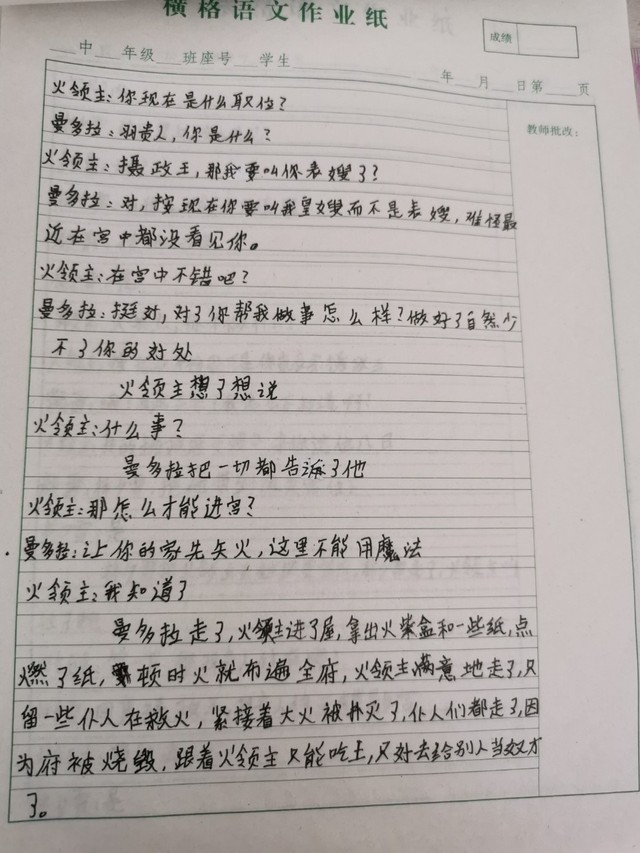 横格语文作业纸
成绩
中 年级 班座号 学生 年 月 日第 页
教师批改：
火领主：你现在是什么职位？
曼多拉：羽贵人，你是什么？
火领主：摄政王，那我要叫你表嫂了？
曼多拉：对，按现在你要叫我皇嫂而不是表嫂，难怪最
近在宫中都没看见你。
火领主：在宫中不错吧？
曼多拉：挺好，对了你帮我做事怎么样？做好了自然少
不了你的好处
火领主想了想说
火领主：什么事？
曼多拉把一切都告诉了他
火领主：那怎么才能进宫？
曼多拉：让你的家先失火，这里不能用魔法
火领主：我知道了
曼多拉走了，火领主进了屋，拿出火柴盒和一些纸，点
燃了纸，顿时火就布遍全府，火领主满意地走了，只
留一些仆人在救火，紧接着大火被扑灭了，仆人们都走了，因
为府被烧毁，跟着火领主只能吃土，只好去给别人当奴才
了。